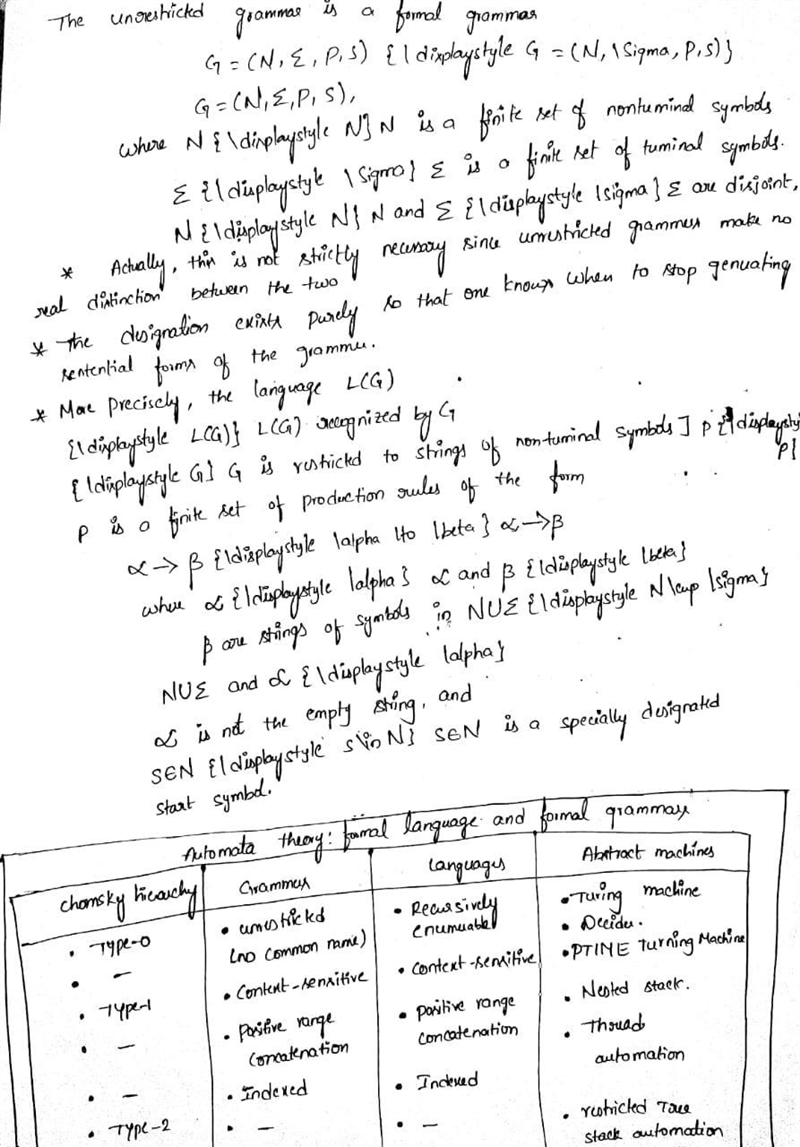 The unrestricted grammar is a formal grammar
G = (N, Σ, P, S) {\displaystyle G = (N, \Sigma, P, S)}
G = (N, Σ, P, S),
where N {\displaystyle N} N is a finite set of nonterminal symbols
Σ {\displaystyle \Sigma} Σ is a finite set of terminal symbols.
N {\displaystyle N} N and Σ {\displaystyle \sigma} Σ are disjoint,
* Actually, this is not strictly necessary since unrestricted grammers make no
real distinction between the two
* The designation exists purely so that one knows when to stop generating
sentential forms of the grammer.
* More precisely, the language L(G)
{\displaystyle L(G)} L(G) recognized by G
{\displaystyle G} G is restricted to strings of non-terminal symbols] P {\displaystyle P}
P is a finite set of production rules of the form
α → β {\displaystyle \alpha \to \beta} α → β
where α {\displaystyle \alpha} α and β {\displaystyle \beta}
β are strings of symbols in NUΣ {\displaystyle N\cup \sigma}
NUΣ and α {\displaystyle \alpha}
α is not the empty string, and
S∈N {\displaystyle s\in N} S∈N is a specially designated
start symbol.
Automata theory: formal language and formal grammars
Chomsky hierarchy Grammers Languages Abstract machines
• Type-0 • unrestricted • Recursively enumerable • Turing machine
• — (no common name) • Decider.
• Type-1 • Context-sensitive • Context-sensitive • PTIME Turning Machine
• — • Positive range concatenation • positive range concatenation • Nested stack.
• Thread automation
• — • Indexed • Indexed
• Type-2 • — • — • restricted Tree stack automation